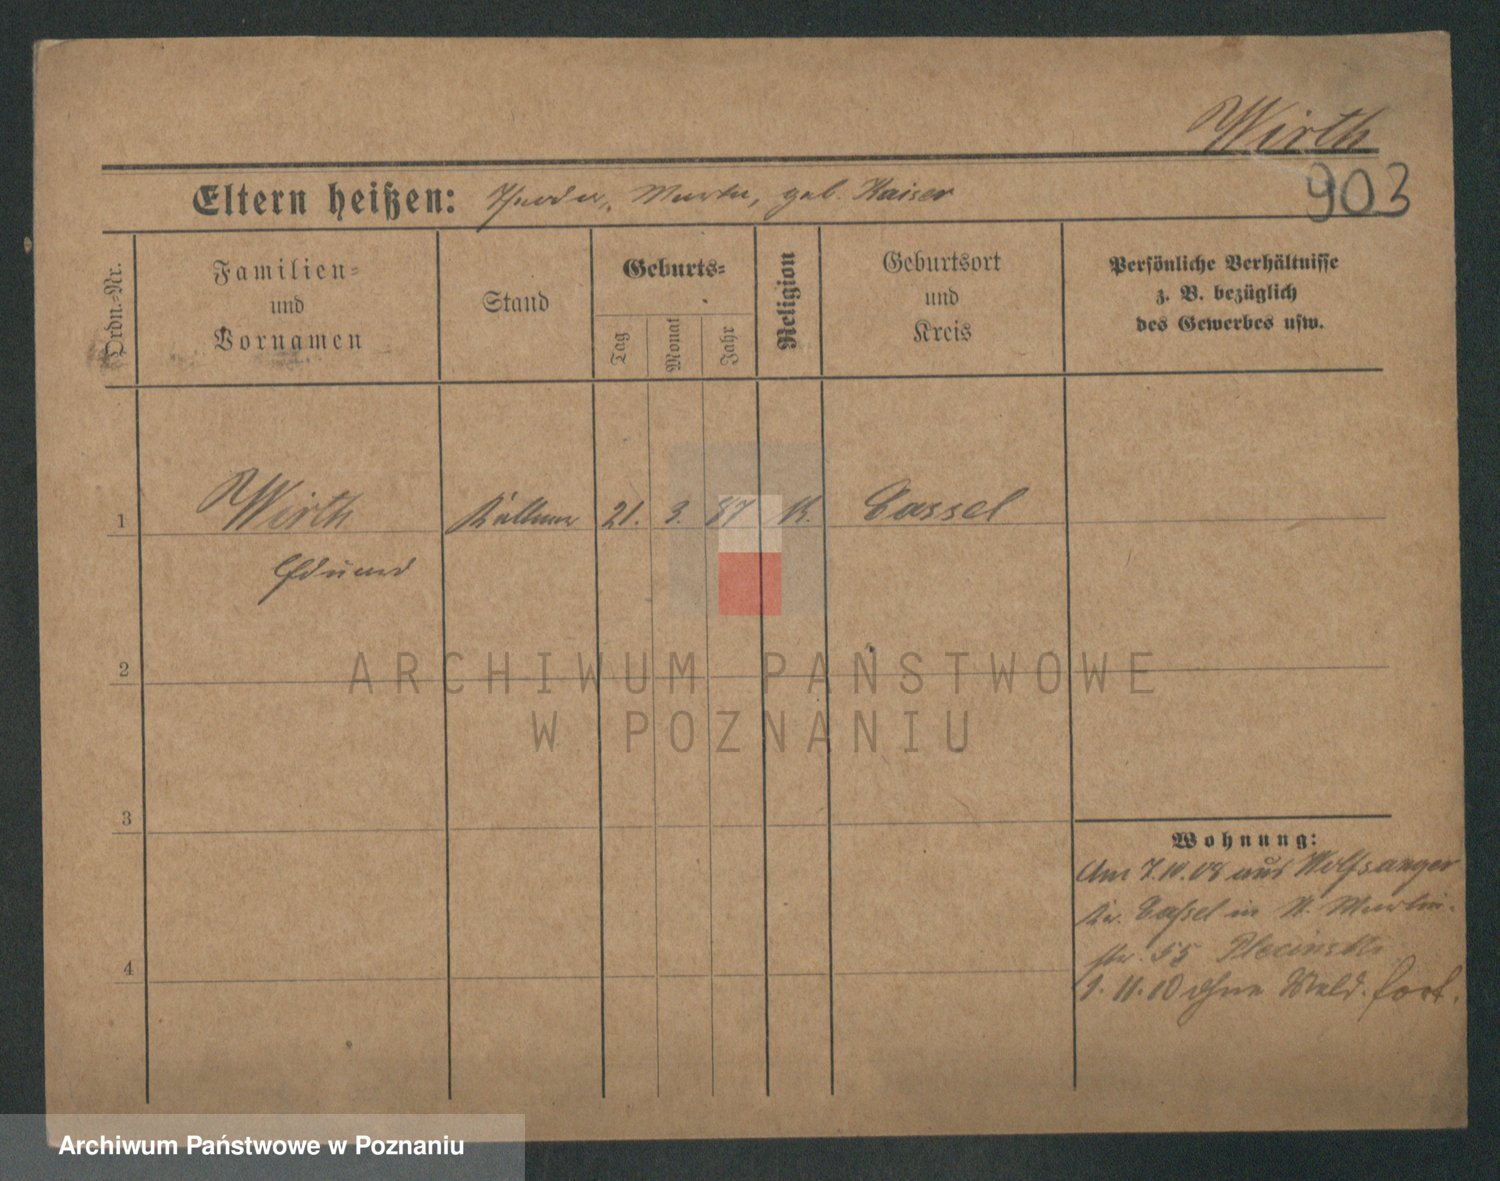 Wirth
903
Eltern heißen: Theodor, Martha, geb. Kaiser
Ordn.-Nr.
Familien-
und
Vornamen
Stand
Geburts-
Tag
Monat
Jahr
Religion
Geburtsort
und
Kreis
Persönliche Verhältnisse
z. B. bezüglich
des Gewerbes usw.
1 Wirth Kellner 21. 3. 87 K. Cassel
Eduard
2
ARCHIWUM PAŃSTWOWE
W POZNANIU
3
4
Wohnung:
Am 7.10.08 aus Wolfsanger
Kr. Caßel in N. Martin-
str. 55
1.11.10 ohne Meld. fort.
Archiwum Państwowe w Poznaniu